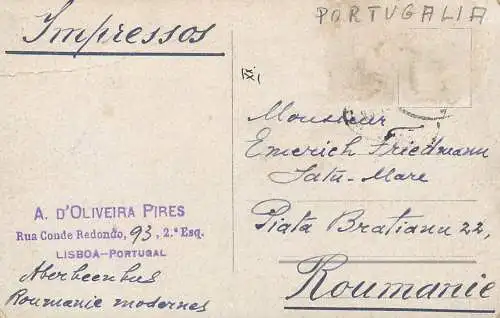 Impressos
PORTUGALIA
Monsieur
Emerich Friedmann
Satu-Mare
Piata Bratianu 22,
Roumanie
A. D'OLIVEIRA PIRES
Rua Conde Redondo, 93, 2.º Esq.
LISBOA—PORTUGAL
Roumanie modernes